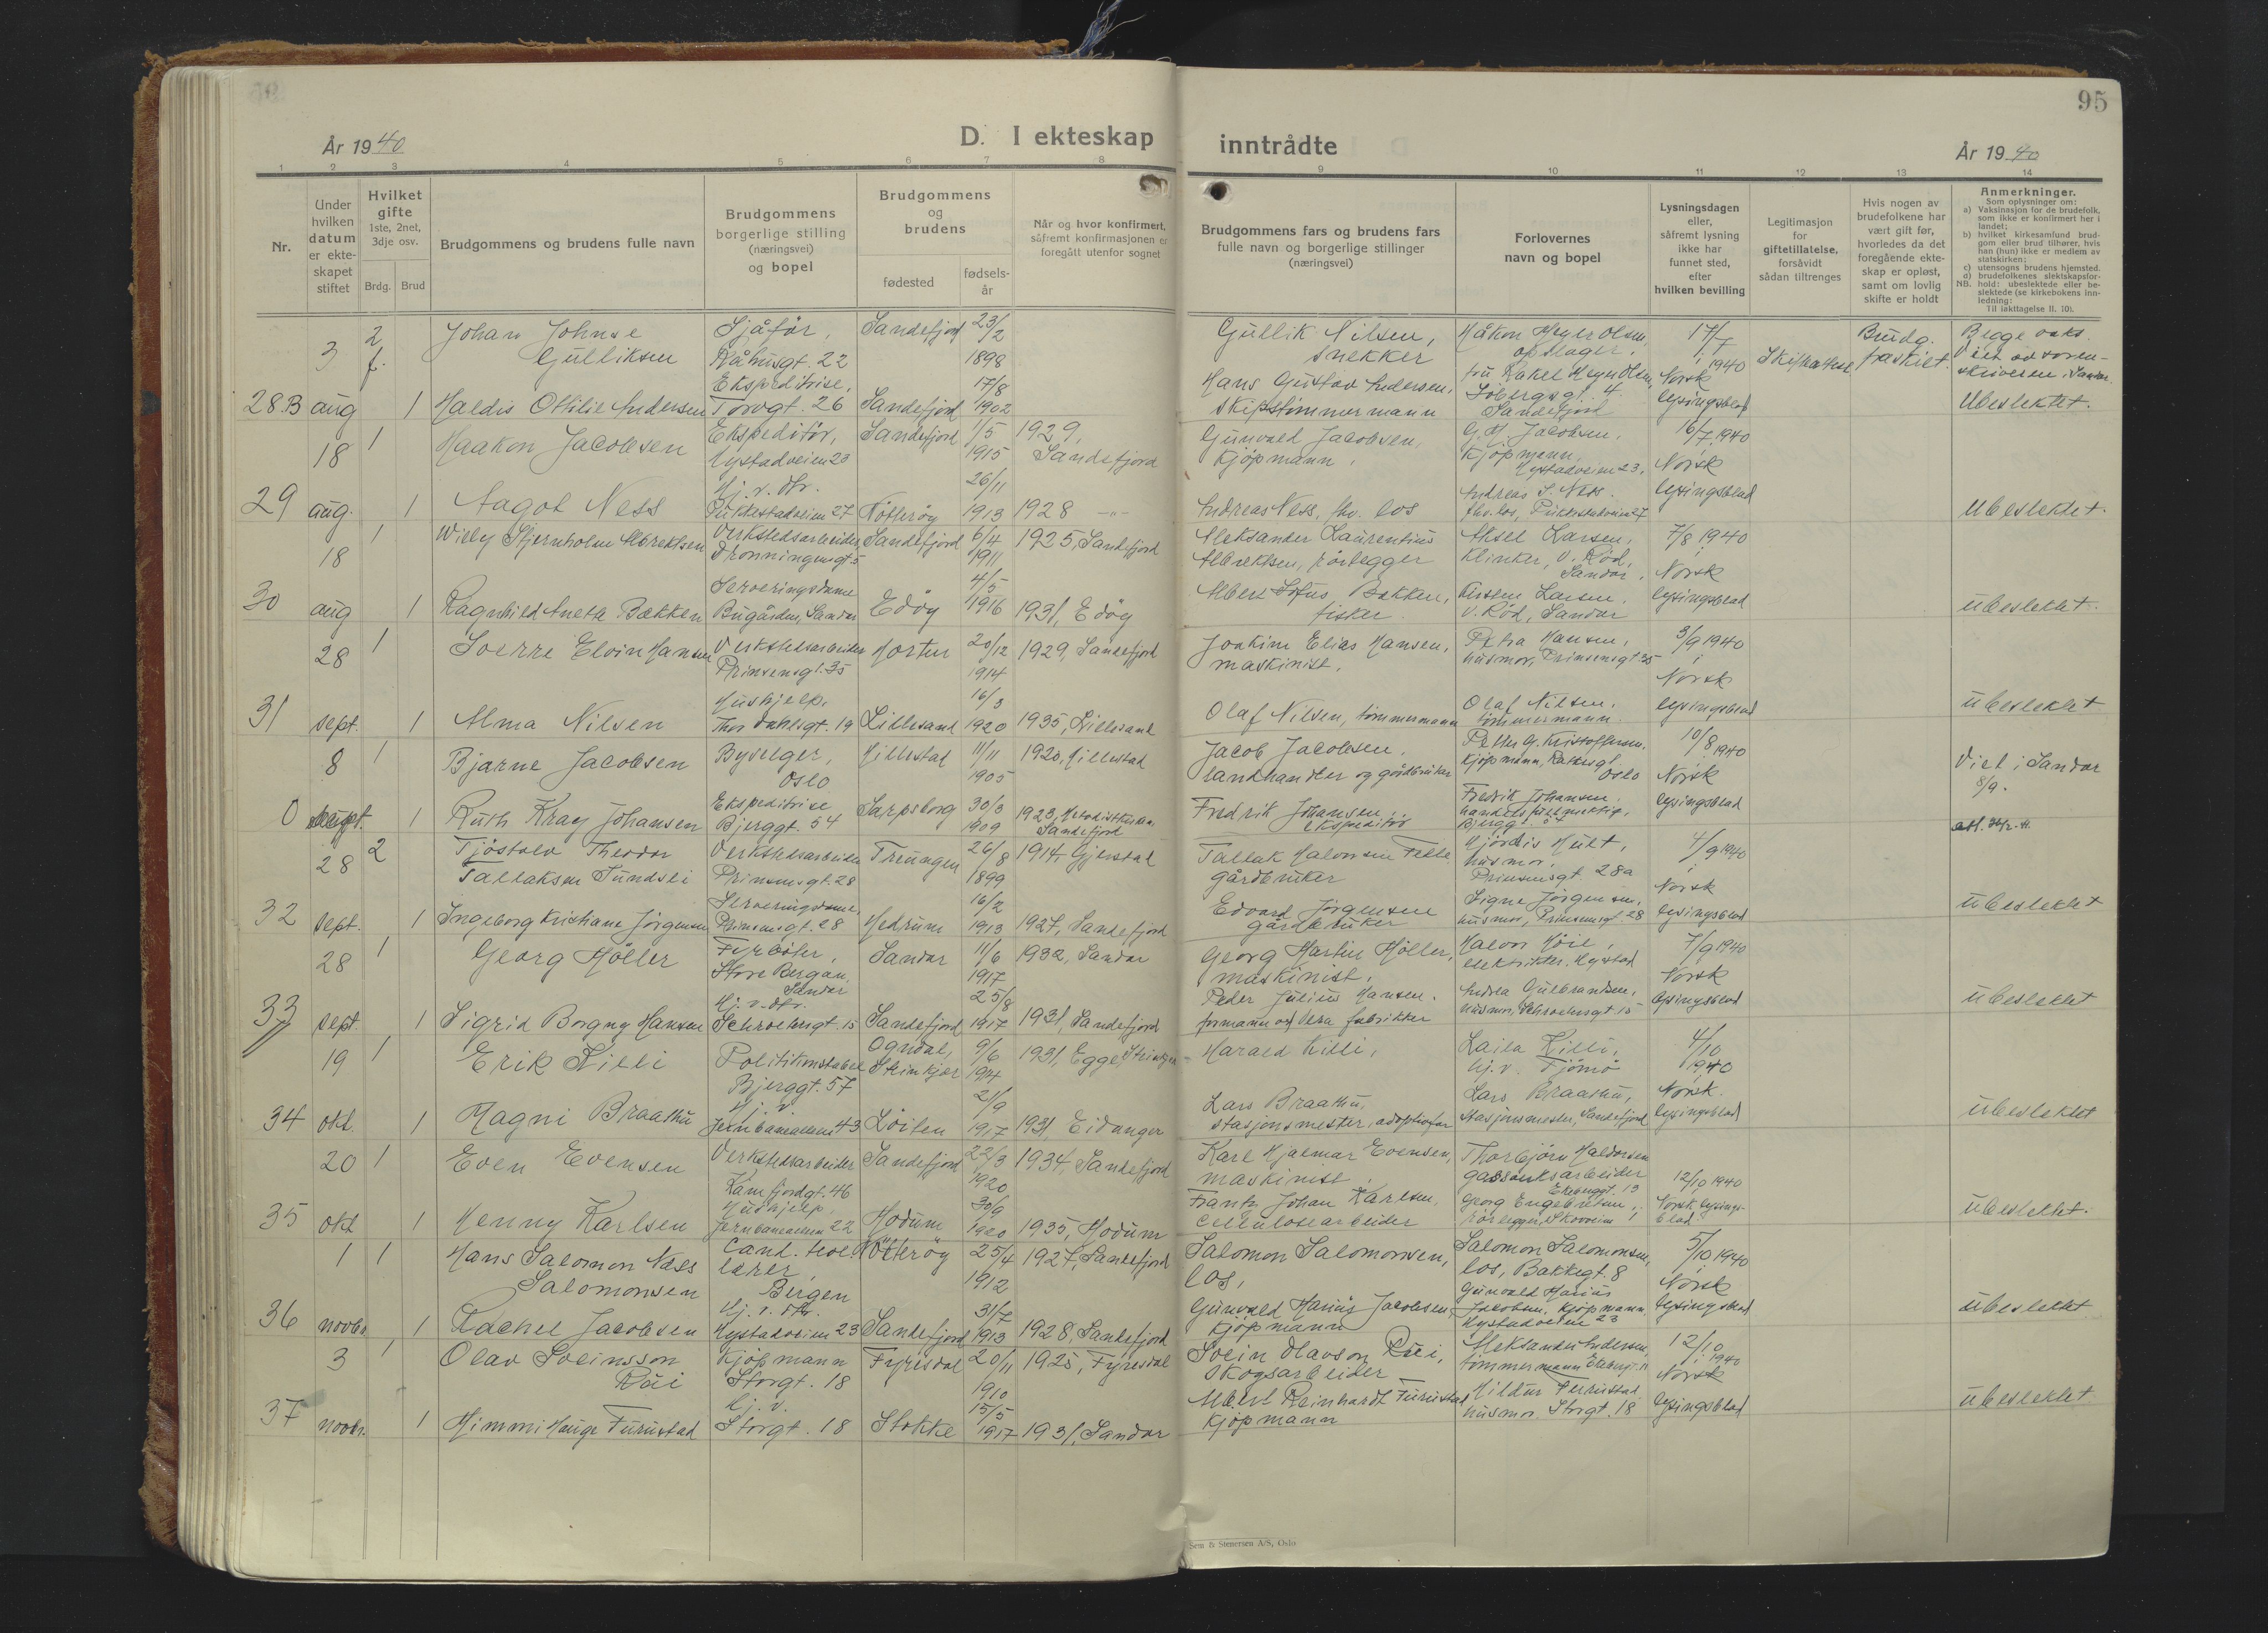 95
År 1940
D. I ekteskap
inntrådte
År 1940
1 2 3 4 5 6 7 8 9 10 11 12 13 14
Nr.
Under
hvilken
datum
er ekte-
skapet
stiftet
Hvilket
gifte
1ste, 2net,
3dje osv.
Brdg.
Brud
Brudgommens og brudens fulle navn
Brudgommens
borgerlige stilling
(næringsvei)
og bopel
Brudgommens
og
brudens
fødested
fødsels-
år
Når og hvor konfirmert,
såfremt konfirmasjonen er
foregått utenfor sognet
Brudgommens fars og brudens fars
fulle navn og borgerlige stillinger
(næringsvei)
Forlovernes
navn og bopel
Lysningsdagen
eller,
såfremt lysning
ikke har
funnet sted,
efter
hvilken bevilling
Legitimasjon
for
giftetillatelse,
forsåvidt
sådan tiltrenges
Hvis nogen av
brudefolkene har
vært gift før,
hvorledes da det
foregående ekte-
skap er opløst,
samt om lovlig
skifte er holdt
Anmerkninger.
Som oplysninger om:
a) Vaksinasjon for de brudefolk,
som ikke er konfirmert her i
landet;
b) hvilket kirkesamfund brud-
gom eller brud tilhører, hvis
han (hun) ikke er medlem av
statskirken;
c) utensogns brudens hjemsted.
d) brudefolkenes slektskapsfor-
NB. hold: ubeslektede eller be-
slektede (se kirkebokens inn-
ledning:
Til iakttagelse II. 10).
28.B
3
aug
2
f.
1
Johan Johnse
Gulliksen
Sjåfør,
Råhusgt. 22
Sandefjord
23/2
1898
Gullik Nilsen,
snekker
Håkon Meyer Olsen,
opslager,
17/7
1940
Skifteattest
Brudg.
fraskilt.
Begge vaks.
Viet av soren-
skriveren i Sandar.
Haldis Ottilie Andersen
Ekspeditrise,
Torvgt. 26
Sandefjord
17/8
1902
Hans Gustav Andersen,
skipstømmermann
fru Rakel Meyer Olsen,
Sobergsgt. 4
Sandefjord
Norsk
lysingsblad
Ubeslektet.
29
18
aug.
1
1
Haakon Jacobsen
Ekspeditør,
Hystadveien 23
Sandefjord
1/5
1915
1929,
Sandefjord
Gunvald Jacobsen,
Kjøpmann,
G. M. Jacobsen,
Kjøpmann,
Hystadveien 23,
16/7 1940
Norsk
lysingsblad
Aagot Ness
Hj. v. dtr.
Pukkestadveien 27
Nøtterøy
26/11
1913
1928 —"—
Andreas Ness, fhv. los
Andreas S. Ness.
fhv. los, Pukkestadveien 27
Ubeslektet.
30
18
aug
1
1
Willy Stjernholm Albrektsen
Verkstedsarbeider
Dronningensgt. 5
Sandefjord
6/4
1911
1925, Sandefjord
Aleksander Laurentius
Albrektsen, rørlegger
Aksel Larsen,
Klinker, V. Rød,
Sandar,
7/8 1940
Norsk
lysingsblad
Ragnhild Aneta Bækken
Serveringsdame
Bugården, Sandar
Edøy
4/5
1916
1931, Edøy
fisker.
Kirsten Larsen,
V. Rød, Sandar
ubeslektet.
31
28
sept.
1
1
Sverre Elvin Hansen
Verkstedsarbeider
Prinsensgt. 35
Horten
20/12
1914
1929, Sandefjord
Joakim Elias Hansen,
maskinist,
Petra Hansen,
husmor, Prinsensgt 35
3/9 1940
Norsk
lysingsblad
Alma Nilsen
Hushjelp,
Thor Dahlsgt. 19
Lillesand
16/3
1920
1935, Lillesand
Olaf Nilsen, tømmermann
Olaf Nilsen,
tømmermann.
ubeslektet
0
8
sept.
1
1
Bjarne Jacobsen
Byselger,
Oslo
Hillestad
11/11
1905
1920, Hillestad
Jacob Jacobsen,
landhandler og gårdbruker
Petter G. Kristoffersen,
Kjøpmann,
Oslo
10/8 1940
Norsk
lysingsblad
Viet i Sandar
8/9.
Ruth Kray Johansen
Ekspeditrise
Bjerggt. 54
Sarpsborg
30/3
1909
1923, Metodistkirken,
Sandefjord
Fredrik Johansen
ekspeditør
Fredrik Johansen,
32
28
sept.
2
1
Tjøstolv Theodor
Tallaksen Sundsli
Verkstedsarbeider
Prinsensgt. 28
Treungen
26/8
1899
1914, Gjerstad
gårdbruker
Hjørdis Hult,
husmor,
Prinsensgt 28a
4/9 1940
Norsk
lysingsblad
Ingeborg Kristiane Jørgensen
Serveringsdame,
Prinsensgt. 28
Hedrum
16/2
1913
1927, Sandefjord
Edvard Jørgensen
gårdbruker
Signe Jørgensen,
husmor, Prinsensgt 28
ubeslektet
33
28
sept.
1
1
Georg Høller
Fyrbøter,
Store Bergan,
Sandar
Sandar
11/6
1917
1932, Sandar
Georg Martin Høller,
maskinist,
Halvor Høie,
elektriker, Hystad
7/9 1940
Norsk
lysingsblad
Sigrid Borgny Hansen
Hj. v. dtr.
Schrøtersgt. 15
Sandefjord
25/8
1917
1931, Sandefjord
Peder Julius Hansen.
formann ved Vera fabrikker
Andrea Gulbrandsen,
husmor, Schrøtersgt 15
ubeslektet
34
19
okt.
1
1
Erik Lilli
Politikonstabel
Bjerggt. 57
Ogndal,
Steinkjær
9/6
1914
1931, Egge, Steinkjær
Harald Killi,
Laila Killi,
hj. v. Tjømø
4/10
1940
Norsk
lysingsblad
Magni Braathu
hj. v.
Jernbanealleen 43
Løiten
21/9
1917
1931, Eidanger
Lars Braathu,
stasjonsmester, adoptivfar
Lars Braathu,
stasjonsmester, Sandefjord
ubeslektet
35
20
okt
1
1
Even Evensen
Verkstedsarbeider
Lamfjordgt. 46
Sandefjord
22/3
1920
1934, Sandefjord
Karl Hjalmar Evensen,
maskinist
Thorbjørn Haldorsen
gassverksarbeider
12/10 1940
Norsk lysings-
blad
Henny Karlsen
Hushjelp,
Jernbanealleen 22
Modum
30/9
1920
1935, Modum
Frantz Johan Karlsen,
cellulosearbeider
Georg Engebretsen,
rørlegger,
ubeslektet.
36
1
novbr.
1
1
Hans Salomon Næss
Salomonsen
Cand. teol.
lærer,
Bergen
Nøtterøy
25/4
1912
1927, Sandefjord
Salomon Salomonsen,
los,
Salomon Salomonsen,
los, Bakkegt. 8
5/10 1940
Norsk
lysingsblad
Rachel Jacobsen
Hj. v. dtr.
Hystadveien 23
Sandefjord
31/7
1913
1928, Sandefjord
Gunvald Marius Jacobsen,
Kjøpmann
Gunvald Marius
Jacobsen, Kjøpmann,
Hystadveien 23
ubeslektet
37
3
novbr.
1
1
Olav Sveinsson
Rui
Kjøpmann
Storgt. 18
Fyresdal
20/11
1910
1925, Fyresdal
Svein Olavson Rui,
skogsarbeider
Aleksander Andersen,
tømmermann
12/10 1940
Norsk
lysingsblad
Himmi Hauge Furustad
hj. v.
Storgt. 18
Stokke
15/5
1917
1931, Sandar
Albert Reinhardt Furustad
Kjøpmann
Hildur Furustad
husmor Storgt. 18
ubeslektet
Sem & Stenersen A/S, Oslo